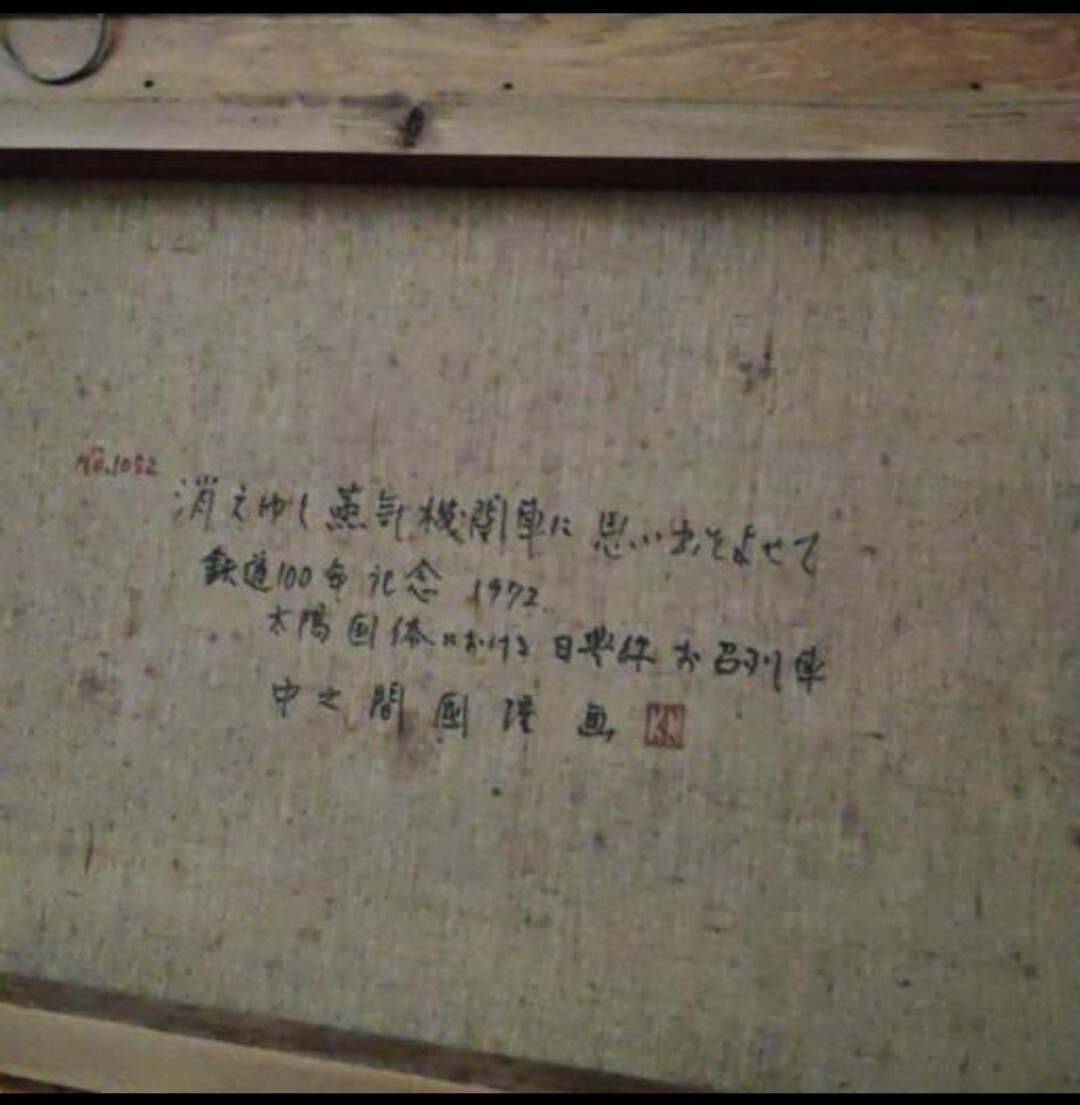 No.1052
消えゆく蒸気機関車に思い出をよせて
鉄道100年記念 1972.
太陽国体における日豊線お召列車
中之間國 画
K.N